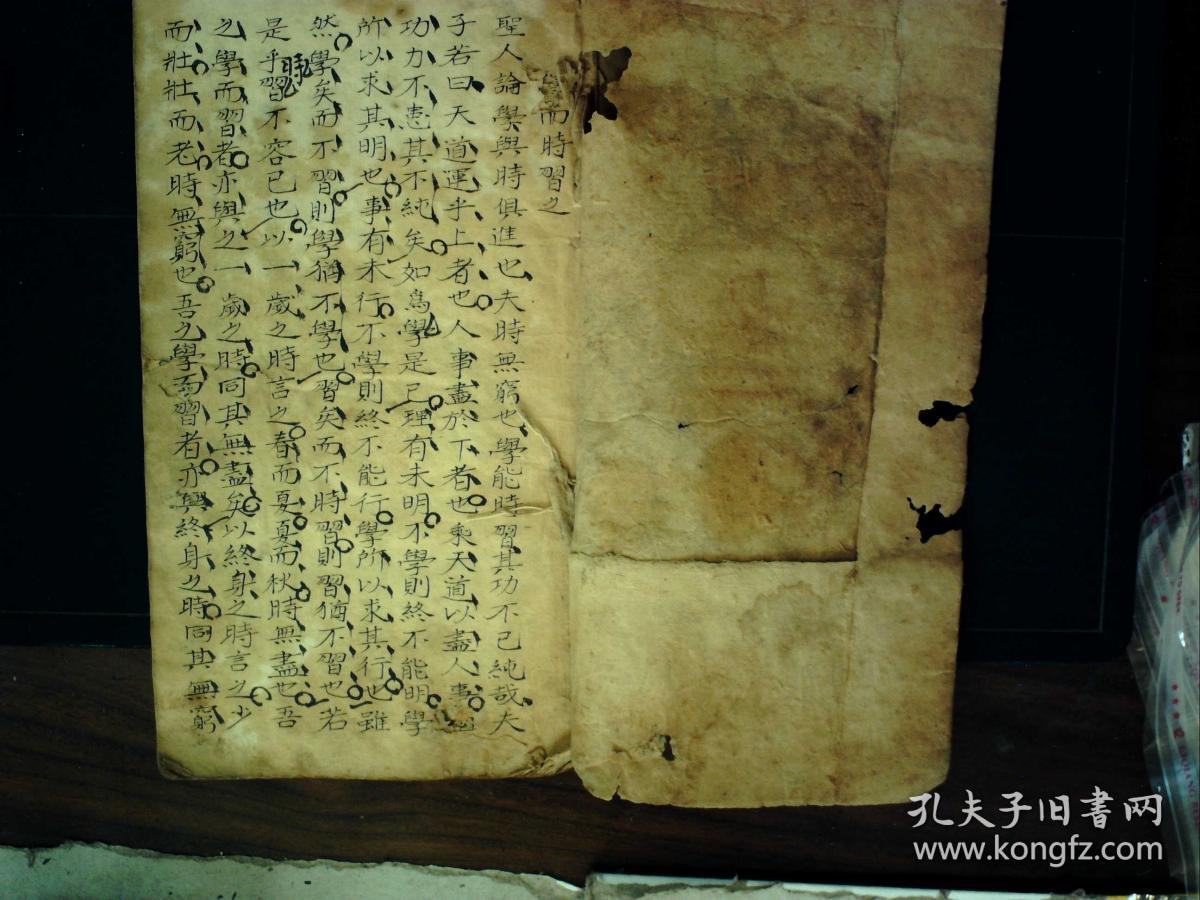 學而時習之
聖人論學與時俱進也夫時無窮也學能時習其功不已純哉夫
子若曰天道運乎上者也人事盡於下者也乘天道以盡人事
功力不患其不純矣如為學是已理有未明不學則終不能明學
所以求其明也事有未行不學則終不能行學所以求其行也雖
然學矣而不習則學猶不學也習矣而不時習則習猶不習也若
是乎時習不容已也以一歲之時言之春而夏夏而秋時無盡也吾
之學而習者亦與之一歲之時同其無盡矣以終身之時言之少
而壯壯而老時無窮也吾之學而習者亦與終身之時同其無窮
孔夫子旧書网
www.kongfz.com